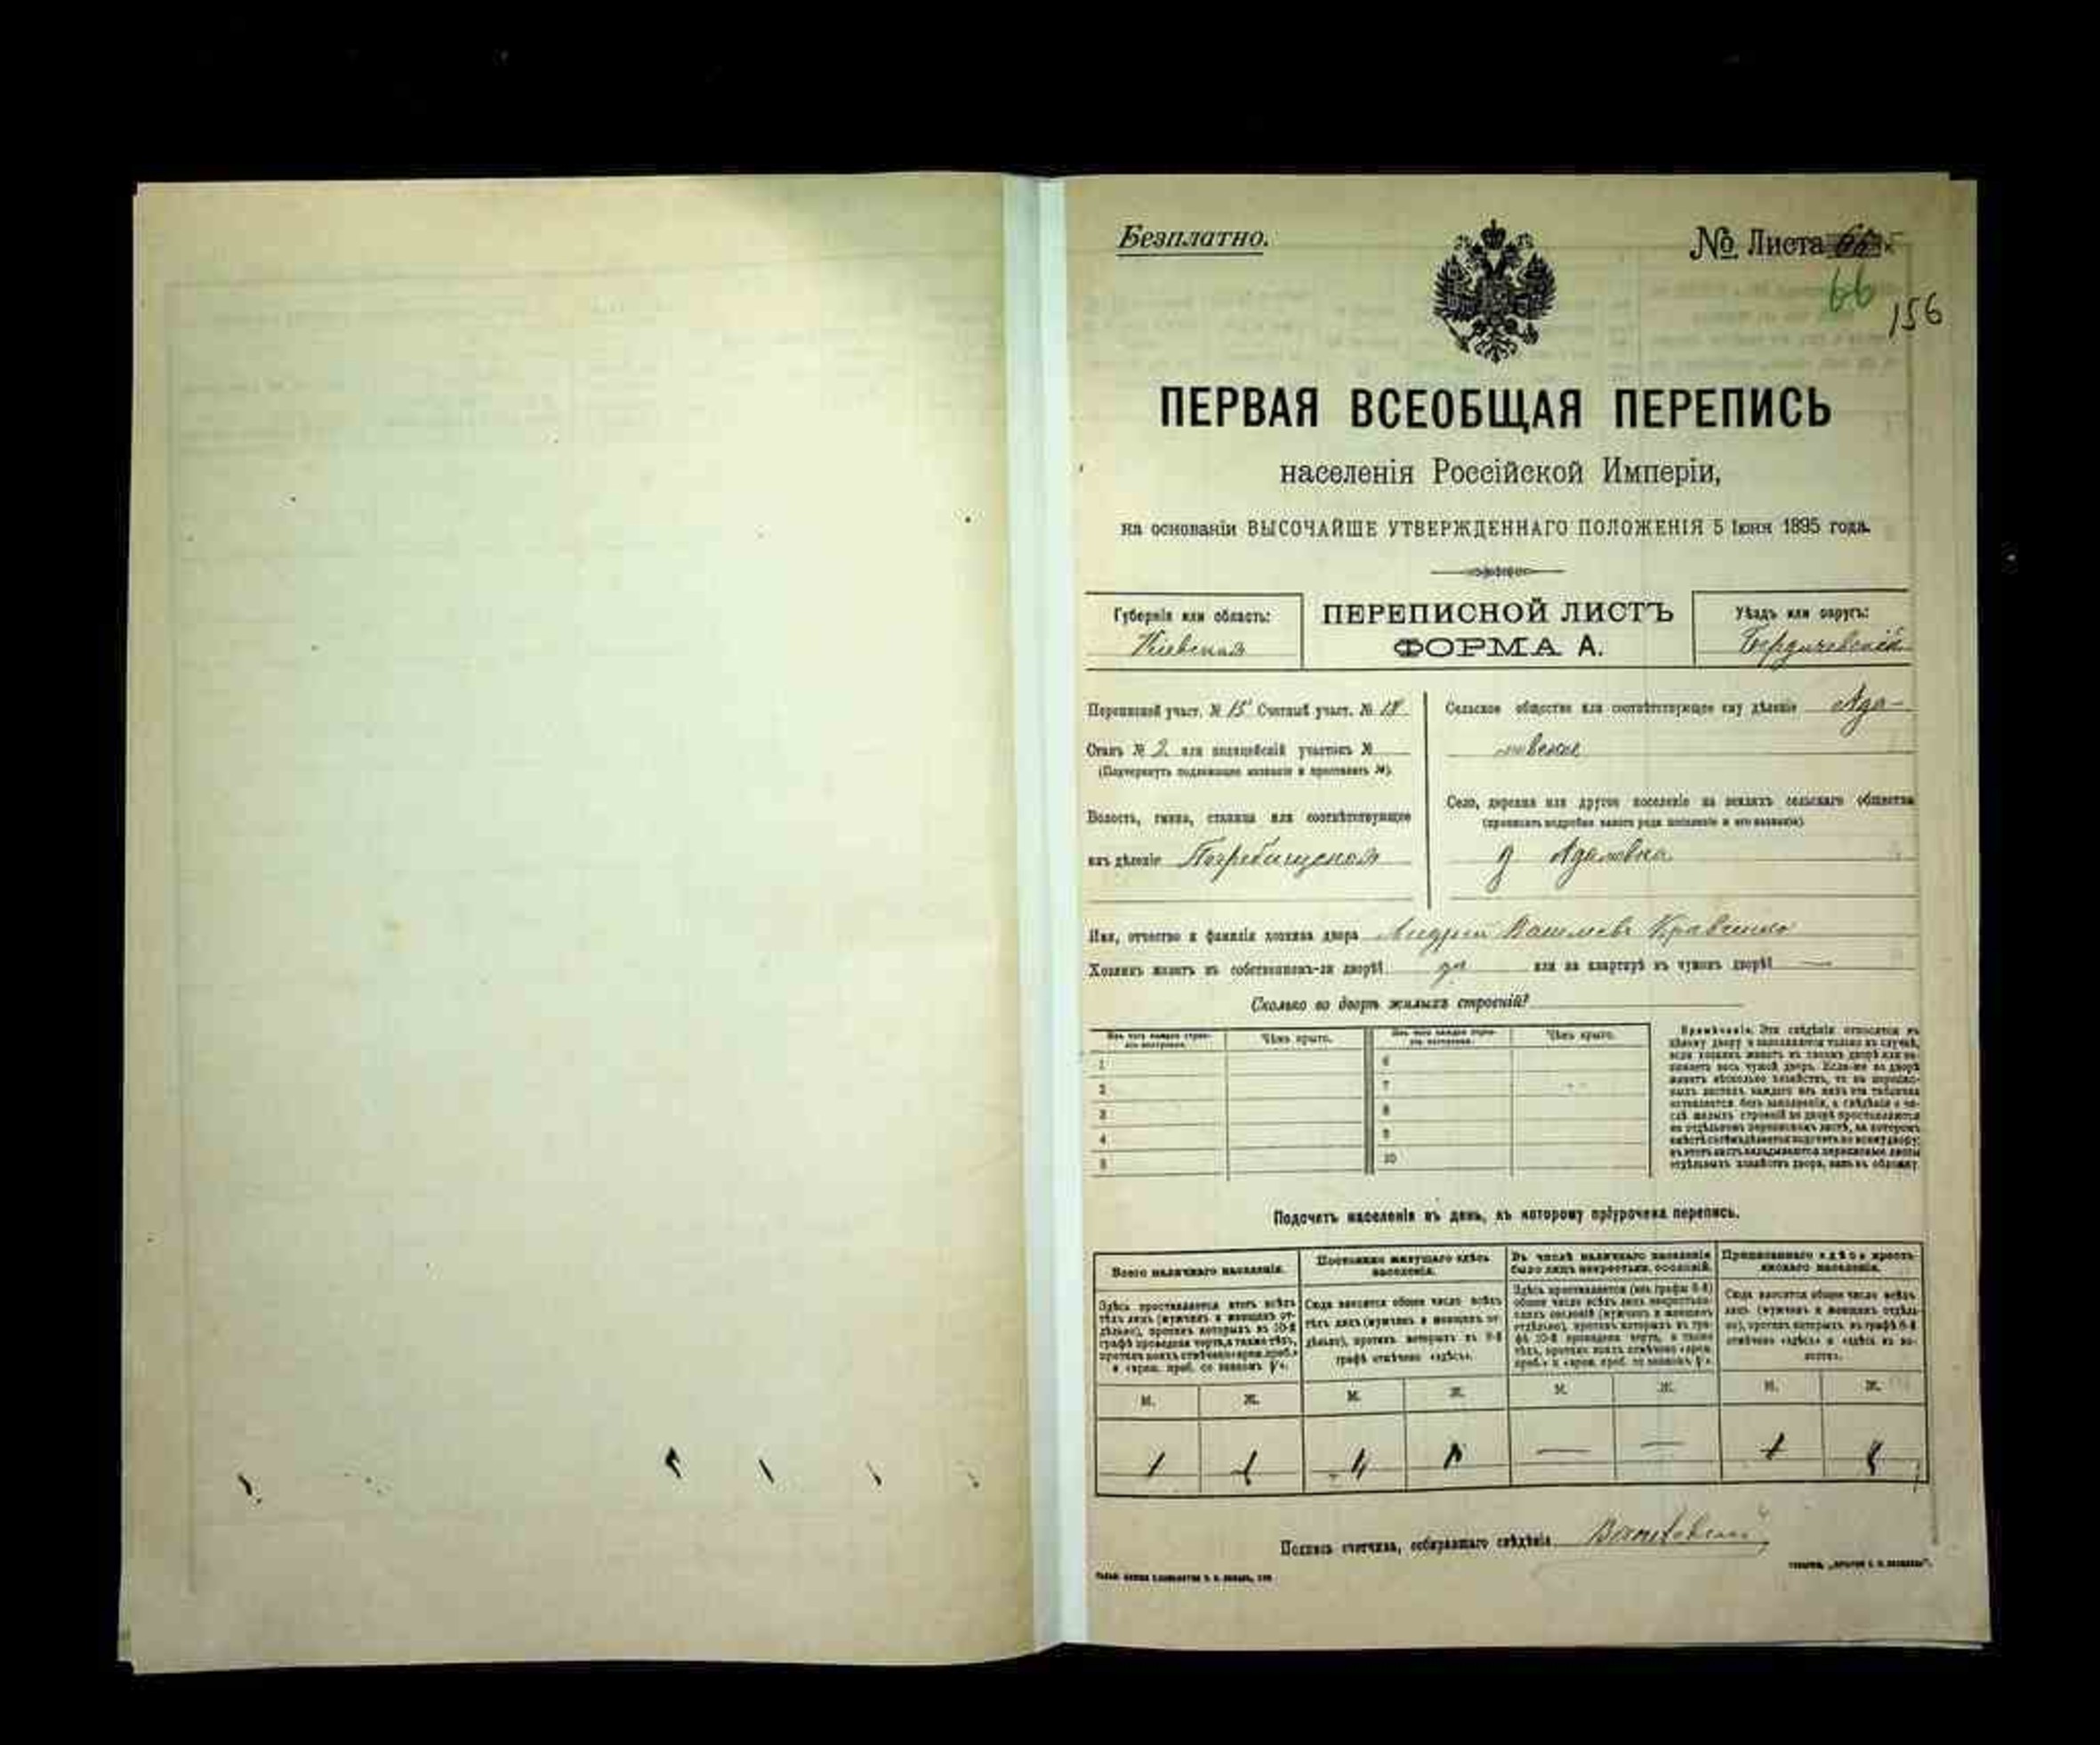 Безплатно.
№ Листа
66
156
ПЕРВАЯ ВСЕОБЩАЯ ПЕРЕПИСЬ
населенія Россійской Имперіи,
на основаніи ВЫСОЧАЙШЕ УТВЕРЖДЕННАГО ПОЛОЖЕНІЯ 5 Іюня 1895 года.
Губернія или область:
Кіевская
ПЕРЕПИСНОЙ ЛИСТЪ
ФОРМА А.
Уѣздъ или округъ:
Бердичевскій
Переписной участ. № 15 Счетный участ. № 18
Станъ № 2 или полицейскій участокъ №
(Подчеркнуть подлежащее названіе и проставить №).
Волость, гмина, станица или соотвѣтствующее
имъ дѣленіе Погребищенская
Сельское общество или соотвѣтствующее ему дѣленіе Ада-
мовское
Село, деревня или другое поселеніе на земляхъ сельскаго общества
(прописать подробно какого рода поселеніе и его названіе)
д Адамовка
Имя, отчество и фамилія хозяина двора Андрей Васильевъ Кравченко
Хозяинъ живетъ въ собственномъ-ли дворѣ? да или на квартирѣ въ чужомъ дворѣ? —
Сколько во дворѣ жилыхъ строеній?
Изъ чего каждое строе-
ніе построено.
Чѣмъ крыто.
Изъ чего каждое строе-
ніе построено.
Чѣмъ крыто.
1
2
3
4
5
6
7
8
9
10
Примѣчаніе. Эти свѣдѣнія относятся къ
цѣлому двору и заполняются только въ случаѣ,
если хозяинъ живетъ въ своемъ дворѣ или за-
нимаетъ весь чужой дворъ. Если-же во дворѣ
живетъ нѣсколько хозяйствъ, то въ перепис-
ныхъ листахъ каждаго изъ нихъ эта табличка
оставляется безъ заполненія, а свѣдѣнія о чи-
слѣ жилыхъ строеній во дворѣ проставляются
на отдѣльномъ переписномъ листѣ, на которомъ
вмѣстѣ съ тѣмъ дѣлается подсчетъ по всему двору;
въ этотъ листъ вкладываются переписные листы
отдѣльныхъ хозяйствъ двора, какъ въ обложку.
Подсчетъ населенія въ день, къ которому пріурочена перепись.
Всего наличнаго населенія.
Здѣсь проставляется итогъ всѣхъ
тѣхъ лицъ (мужчинъ и женщинъ от-
дѣльно), противъ которыхъ въ 10-й
графѣ проведена черта, а также тѣхъ,
противъ коихъ отмѣчено «врем. преб.»
и «врем. преб. со знакомъ
Постоянно живущаго здѣсь
населенія.
Сюда вносится общее число всѣхъ
тѣхъ лицъ (мужчинъ и женщинъ от-
дѣльно), противъ которыхъ въ 9-й
графѣ отмѣчено «здѣсь».
Въ числѣ наличнаго населенія
было лицъ некрестьян. сословій.
Здѣсь проставляется (изъ графы
общее число всѣхъ лицъ некрестьян-
скихъ сословій (мужчинъ и женщинъ
отдѣльно), противъ которыхъ въ гра-
фѣ 10-й проведена черта, а также
тѣхъ, противъ коихъ отмѣчено «врем.
преб.» и «врем. преб. со знакомъ
Приписаннаго здѣсь кресть-
янскаго населенія.
Сюда вносится общее число всѣхъ
лицъ (мужчинъ и женщинъ отдѣль-
но), противъ которыхъ въ графѣ 8-й
отмѣчено «здѣсь» и «здѣсь въ во-
лости».
М. Ж. М. Ж. М. Ж. М. Ж.
— —
Подпись счетчика, собиравшаго свѣдѣнія